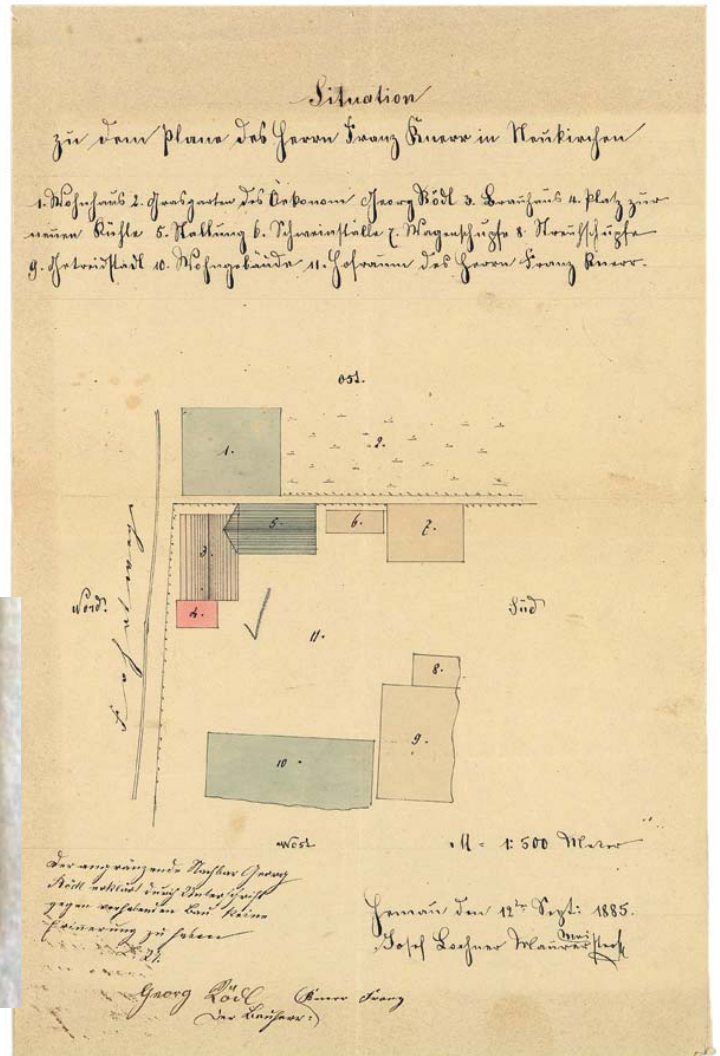 Situation
zu dem Plane des Herrn Franz Knerr in Neukirchen
1. Wohnhaus 2. Grasgarten des Oekonom Georg Rödl 3. Brauhaus 4. Platz zur
neuen Kühle 5. Stallung 6. Schweinställe 7. Wagenschupfe 8. Streuschupfe
9. Getreidstadl 10. Wohngebäude 11. Hofraum des Herrn Franz Knerr.
Ost.
1.
2.
5.
6.
7.
3.
Nord.
Süd
4.
11.
8.
9.
10.
West
M = 1:500 Meter
Der angränzende Nachbar Georg
Rödl erklärt durch Unterschrift
gegen vorhabenden Bau keine
Erinnerung zu haben
Hemau den 12ten Sept: 1885.
Josef Lochner Maurermeister
Georg Rödl Knerr Franz
Der Bauherr: